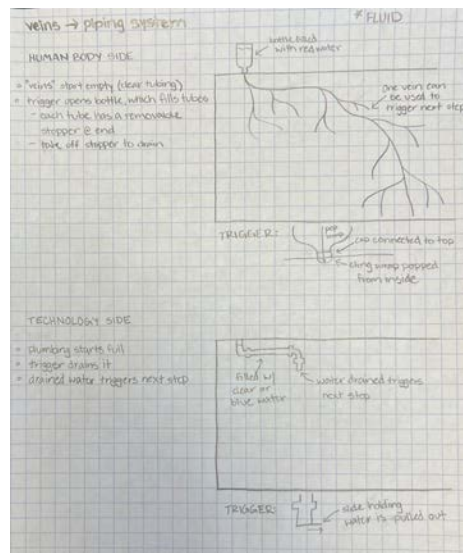 veins → piping system
* FLUID
HUMAN BODY SIDE
- "veins" start empty (clear tubing)
- trigger opens bottle, which fills tubes
- each tube has a removable
stopper @ end
- take off stopper to drain
bottle filled
with red water
one vein can
be used to
trigger next step
TRIGGER:
pop
cap connected to top
cling wrap popped
from inside
TECHNOLOGY SIDE
- plumbing starts full
- trigger drains it
- drained water triggers next step
filled w/
clear or
blue water
water drained triggers
next step
TRIGGER:
side holding
water is pulled out